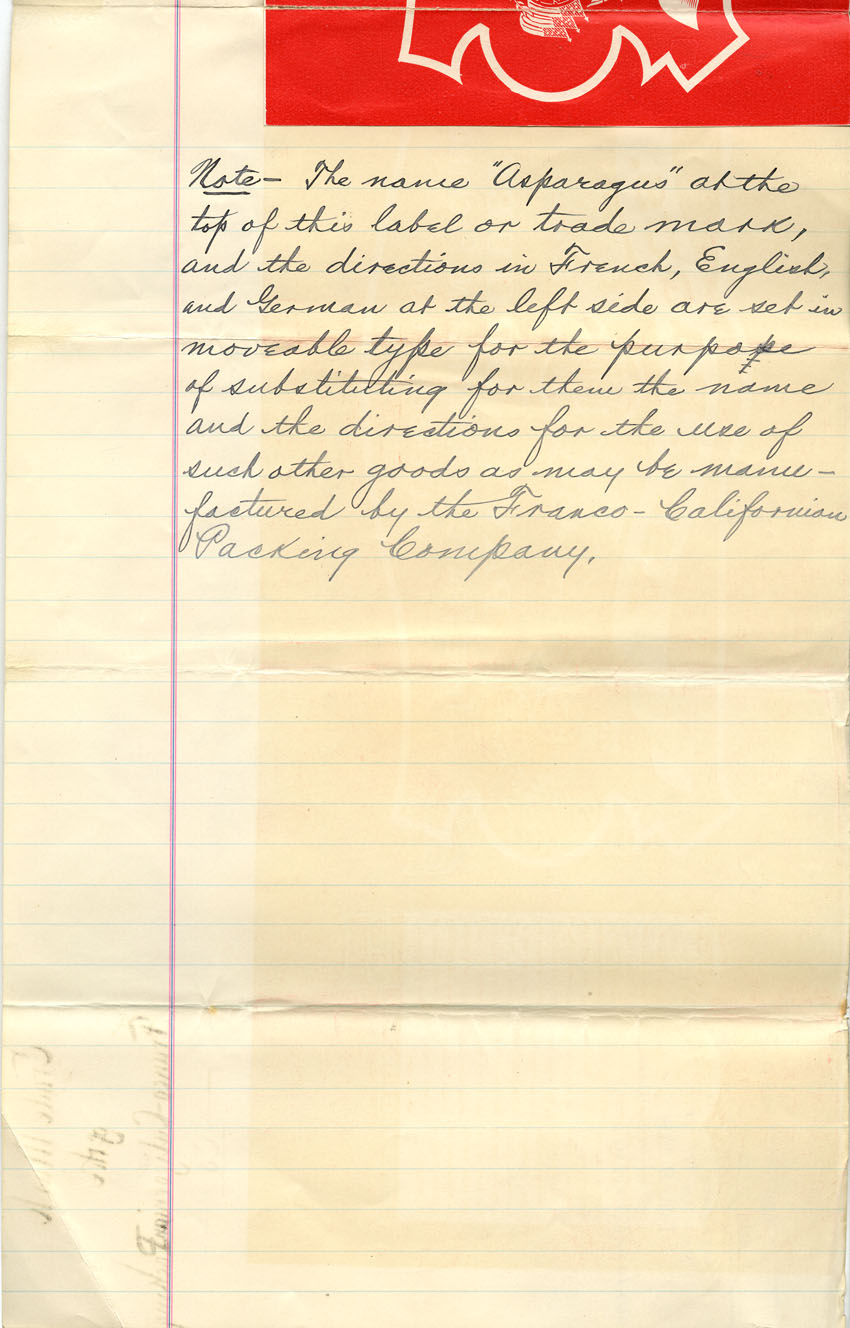 Note – The name "Asparagus" at the
top of this label or trade mark,
and the directions in French, English,
and German at the left side are set in
moveable type for the purpose
of substituting for them the name
and the directions for the use of
such other goods as may be manu-
factured by the Franco-Californian
Packing Company.
Trade Mark
of the
Franco-Californian